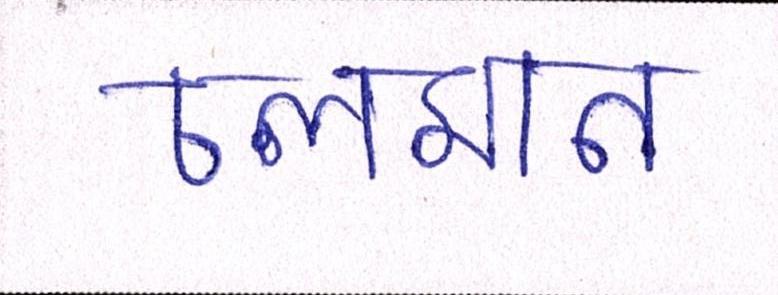 চলমান